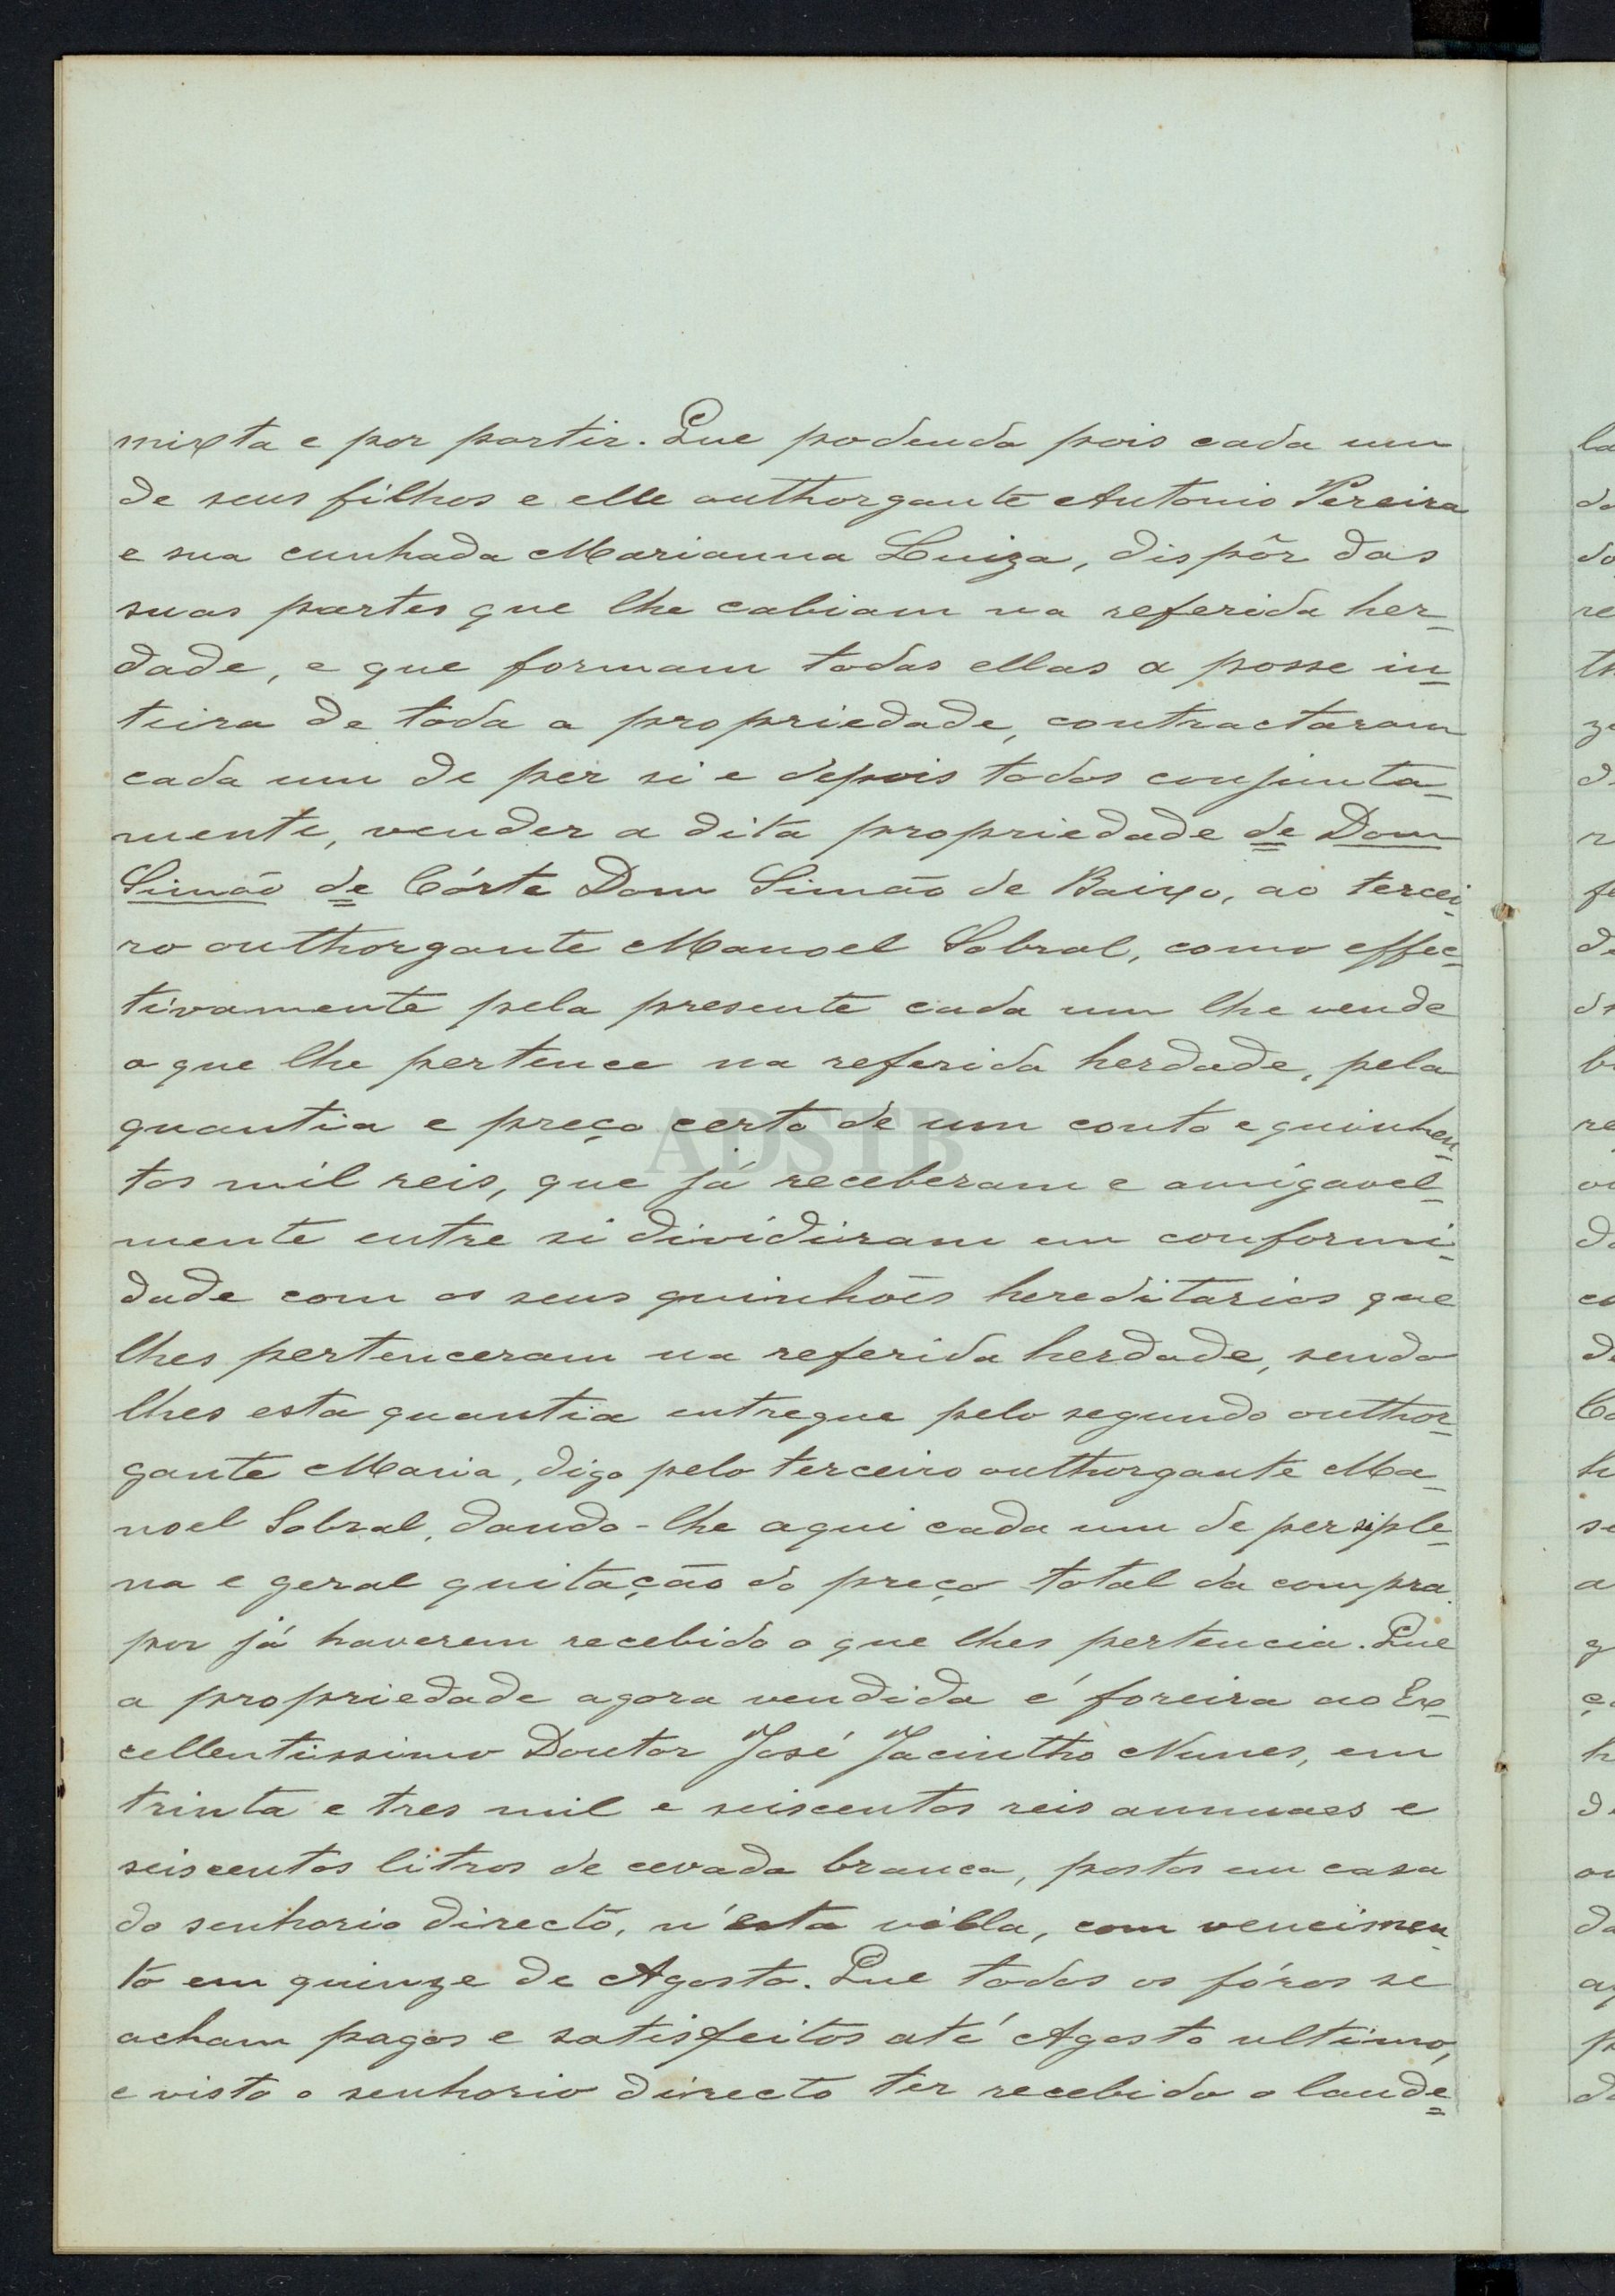 mixta e por partir. Que podendo pois cada um
de seus filhos e elle outhorgante Antonio Pereira
e sua cunhada Marianna Luiza, dispôr das
suas partes que lhe cabiam na referida her-
dade, e que formam todas ellas a posse in-
teira de toda a propriedade, contractaram
cada um de per si e depois todos conjunta-
mente, vender a dita propriedade de Dom
Simão de Córte Dom Simão de Baixo, ao tercei-
ro outhorgante Manoel Sobral, como effec-
tivamente pela presente cada um lhe vende
o que lhe pertence na referida herdade, pela
quantia e preço certo de um conto e quinhen-
tos mil reis, que já receberam e amigavel-
mente entre si dividiram em conformi-
dade com os seus quinhões hereditarios que
lhes pertenceram na referida herdade, sendo
lhes esta quantia entregue pelo segundo outhor-
gante Maria, digo pelo terceiro outhorgante Ma-
noel Sobral, dando-lhe aqui cada um de per si ple-
na e geral quitação do preço total da compra
por já haverem recebido o que lhes pertencia. Que
a propriedade agora vendida é foreira ao Ex-
cellentissimo Doutor José Jacintho Nunes, em
trinta e tres mil e seiscentos reis annuaes e
seiscentos litros de cevada branca, postos em casa
do senhorio directo, n'esta villa, com vencimen-
to em quinze de Agosto. Que todos os fóros se
acham pagos e satisfeitos até Agosto ultimo,
e visto o senhorio directo ter recebido o laude-
ADSTB